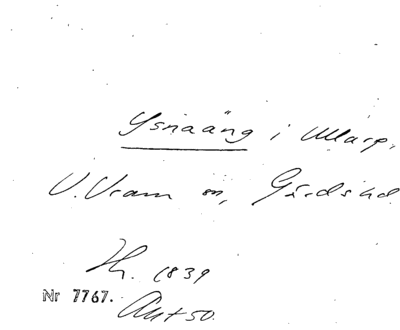 Ysnaäng i Marp,
V. Vram sn, Gärds hd
Hr. 1839
Nr 7767. Akt 50.